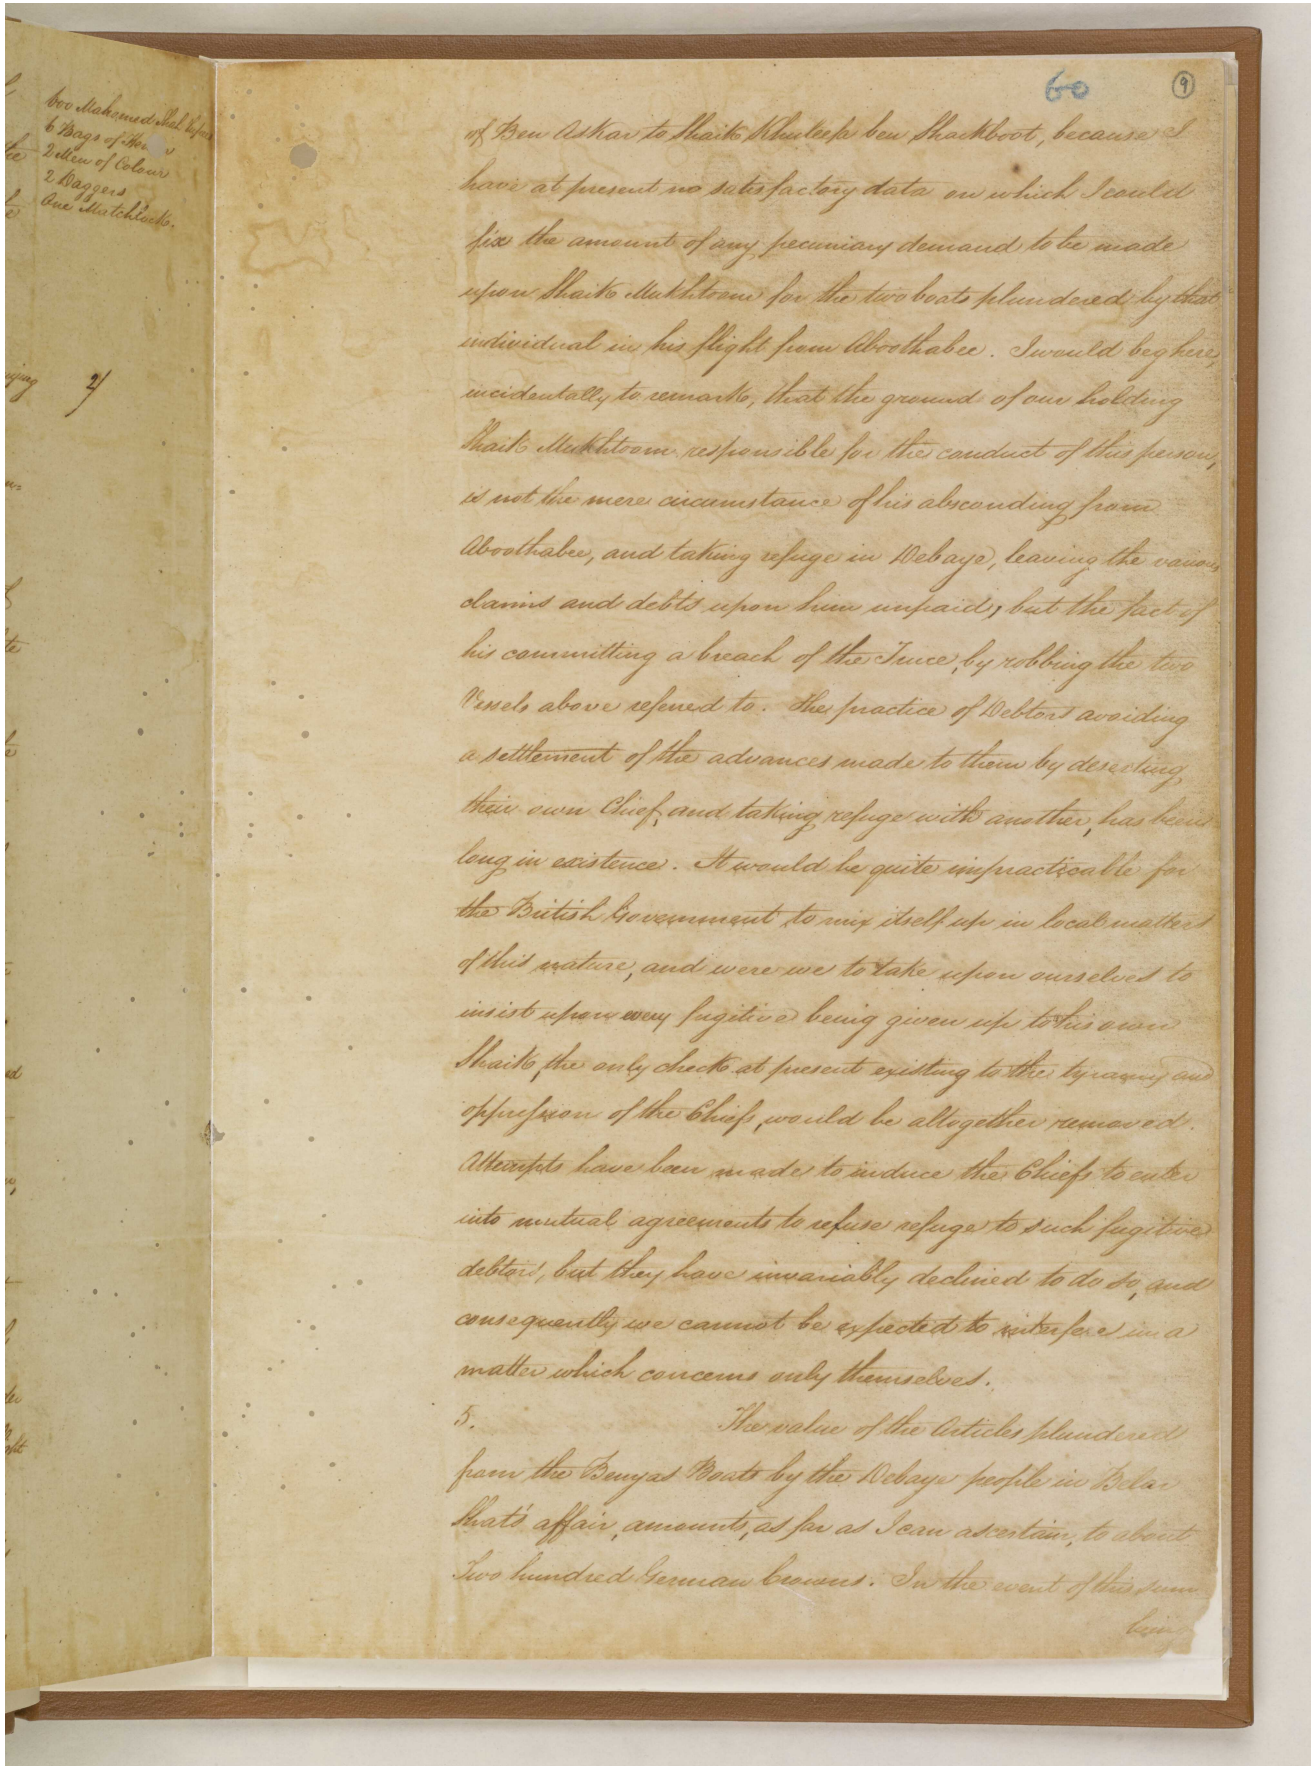 600 Mahomed Shah Rupees
6 Bags of
2 Men of Colour
2 Daggers
One Matchlock.
2/
60
9
of Ben Askar to Shaik Khuleefa ben Shackboot, because I
have at present no satisfactory data on which I could
fix the amount of any pecuniary demand to be made
upon Shaik Mukhtoom for the two boats plundered by that
individual in his flight from Aboothabee. I would beg here,
incidentally to remark, that the ground of our holding
Shaik Mukhtoom responsible for the conduct of this person,
is not the mere circumstance of his absconding from
Aboothabee, and taking refuge in Debaye, leaving the various
claims and debts upon him unpaid, but the fact of
his committing a breach of the Truce, by robbing the two
Vessels above referred to. The practice of Debtors avoiding
a settlement of the advances made to them by deserting
their own Chief, and taking refuge with another, has been
long in existence. It would be quite impracticable for
the British Government to mix itself up in local matters
of this nature, and were we to take upon ourselves to
insist upon every fugitive being given up to his own
Shaik, the only check at present existing to the tyranny and
oppression of the Chiefs, would be altogether removed.
Attempts have been made to induce the Chiefs to enter
into mutual agreements to refuse refuge to such fugitive
debtors, but they have invariably declined to do so, and
consequently we cannot be expected to interfere in a
matter which concerns only themselves.
5. The value of the Articles plundered
from the Benyas Boats by the Debaye people in Belar
Shat's affair, amounts, as far as I can ascertain, to about
Two hundred German Crowns. In the event of this sum
being